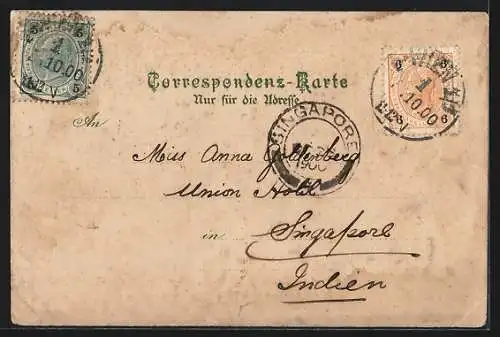 Correspondenz-Karte
Nur für die Adresse
An
Miss Anna Goldenberg
Union Hotel
in Singapore
Indien
SINGAPORE
1900
WIEN
1
10.00
1
10.00
5
5
6
6